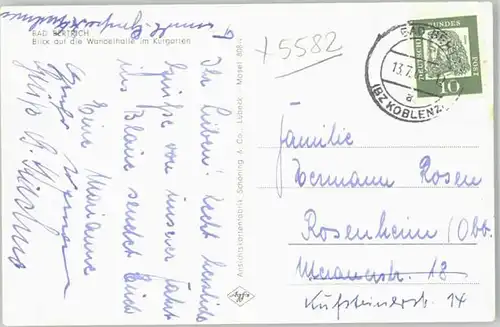 BAD BERTRICH
Blick auf die Wandelhalle im Kurgarten
+ 5582
Ihr Lieben! Recht herzliche
Grüße von unserer Fahrt
ins Blaue sendet Euch
Eure Marianne
Gruß Werner
Ansichtskartenfabrik Schöning & Co., Lübeck
Mosel 808
BAD BER
13.7.
a
(BZ KOBLENZ)
DEUTSCHE BUNDESPOST
10
Familie
Hermann Rosen
Rosenheim/Obb.
Meranerstr. 18
Kufsteinerstr. 14